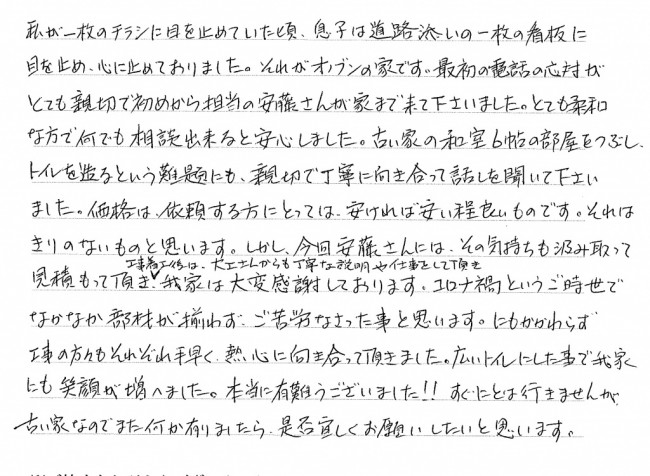 私が一枚のチラシに目を止めていた頃、息子は道路添いの一枚の看板に
目を止め、心に止めておりました。それがオノブンの家です。最初の電話の応対が
とても親切で初めから担当の安藤さんが家まで来て下さいました。とても柔和
な方で何でも相談出来ると安心しました。古い家の和室6帖の部屋をつぶし、
トイレを造るという難題にも、親切で丁寧に向き合って話しを聞いて下さい
ました。価格は、依頼する方にとっては、安ければ安い程良いものです。それは
きりのないものと思います。しかし、今回安藤さんには、その気持ちも汲み取って
工事着工後は、大工さんからも丁寧な説明や仕事をして頂き
見積もって頂き✓我家は大変感謝しております。コロナ禍というご時世で
なかなか部材が揃わず、ご苦労なさった事と思います。にもかかわらず
工事の方々もそれぞれ手早く、熱心に向き合って頂きました。広いトイレにした事で我家
にも笑顔が増へました。本当に有難うございました!! すぐにとは行きませんが、
古い家なのでまた何か有りましたら、是否宜しくお願いしたいと思います。